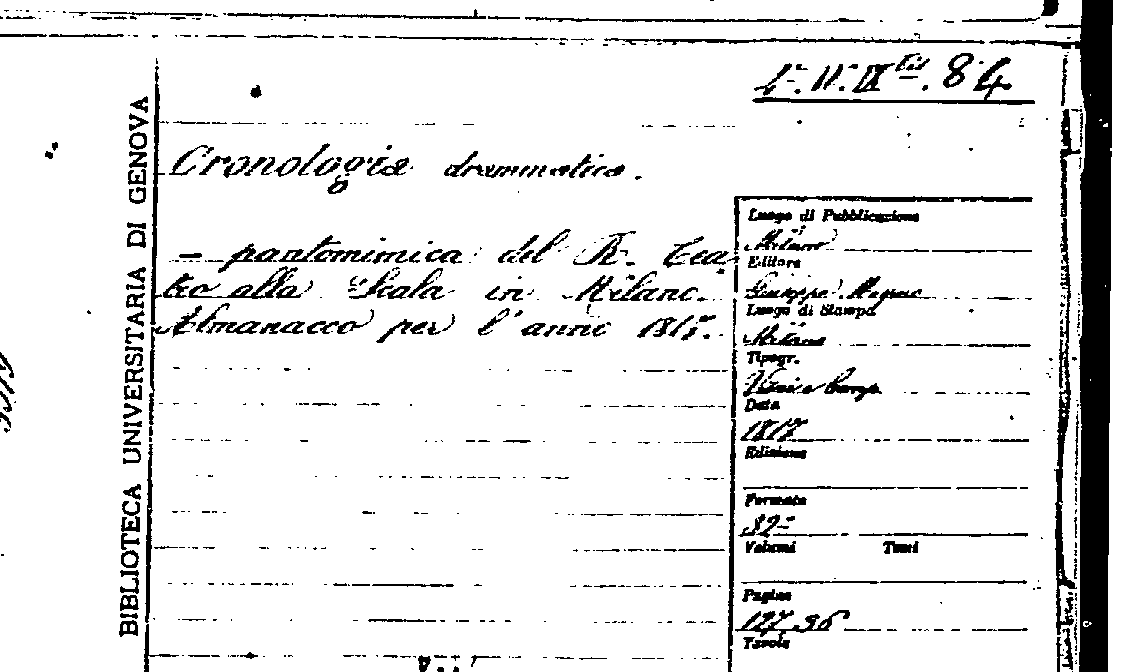 BIBLIOTECA UNIVERSITARIA DI GENOVA
84
Cronologia drammatica.
– pantomimica del R. Tea
tro alla Scala in Milano.
Almanacco per l'anno
Luogo di Pubblicazione
Milano
Editore
Giuseppe
Luogo di Stampa
Milano
Tipogr.
Data
1817
Edizione
Formato
32º
Volumi Tomi
Pagine
127, 36
Tavole